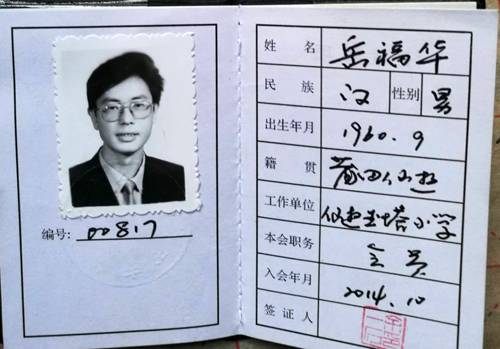 编号: 00817
姓名 岳福华
民族 汉 性别 男
出生年月 1960.9
籍贯 莆田仙游
工作单位 仙游塔小学
本会职务 会员
入会年月 2014.10
签证人